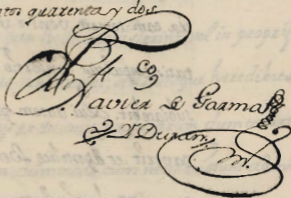 tos quarenta y dos
Fran.co
Xavier de Gazma
y Duran